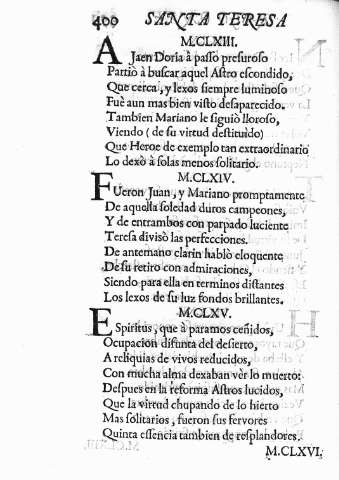 400 SANTA TERESA
M.CLXIII.
A Jaen Doria à passo presuroso
Partiò à buscar aquel Astro escondido,
Que cerca, y lexos siempre luminoso
Fuè aun mas bien visto desaparecido.
Tambien Mariano le siguiò lloroso,
Viendo (de su virtud destituìdo)
Que Heroe de exemplo tan extraordinario
Lo dexò à solas menos solitario.
M.CLXIV.
Fueron Juan, y Mariano promptamente
De aquella soledad duros campeones,
Y de entrambos con parpado luciente
Teresa divisò las perfecciones.
De antemano clarin hablò eloquente
De su retiro con admiraciones,
Siendo para ella en terminos distantes
Los lexos de su luz fondos brillantes.
M.CLXV.
Espiritus, que à paramos ceñidos,
Ocupacion difunta del desierto,
A reliquias de vivos reducidos,
Con mucha alma dexaban vèr lo muerto:
Despues en la reforma Astros lucidos,
Que la virtud chupando de lo hierto
Mas solitarios, fueron sus fervores
Quinta essencia tambien de resplandores.
M.CLXVI.